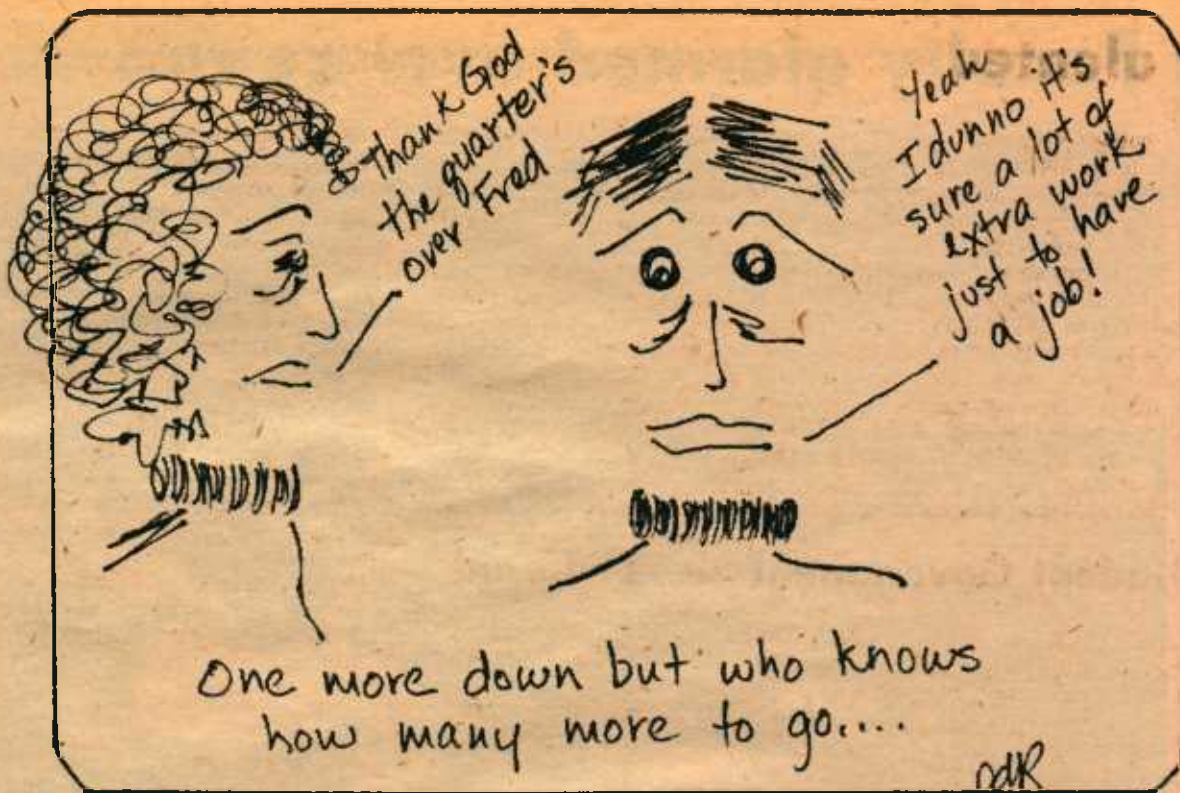 Thank God
the quarter's
over Fred
Yeah
I dunno it's
sure a lot of
extra work
just to have
a job!
One more down but who knows
how many more to go....